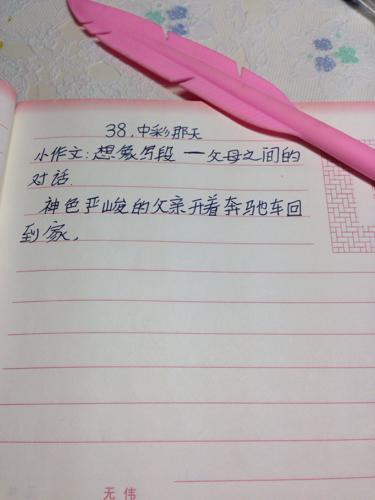 38.中彩那天
小作文:想象写段一父母之间的
对话.
神色严峻的父亲开着奔驰车回
到家,
无伟